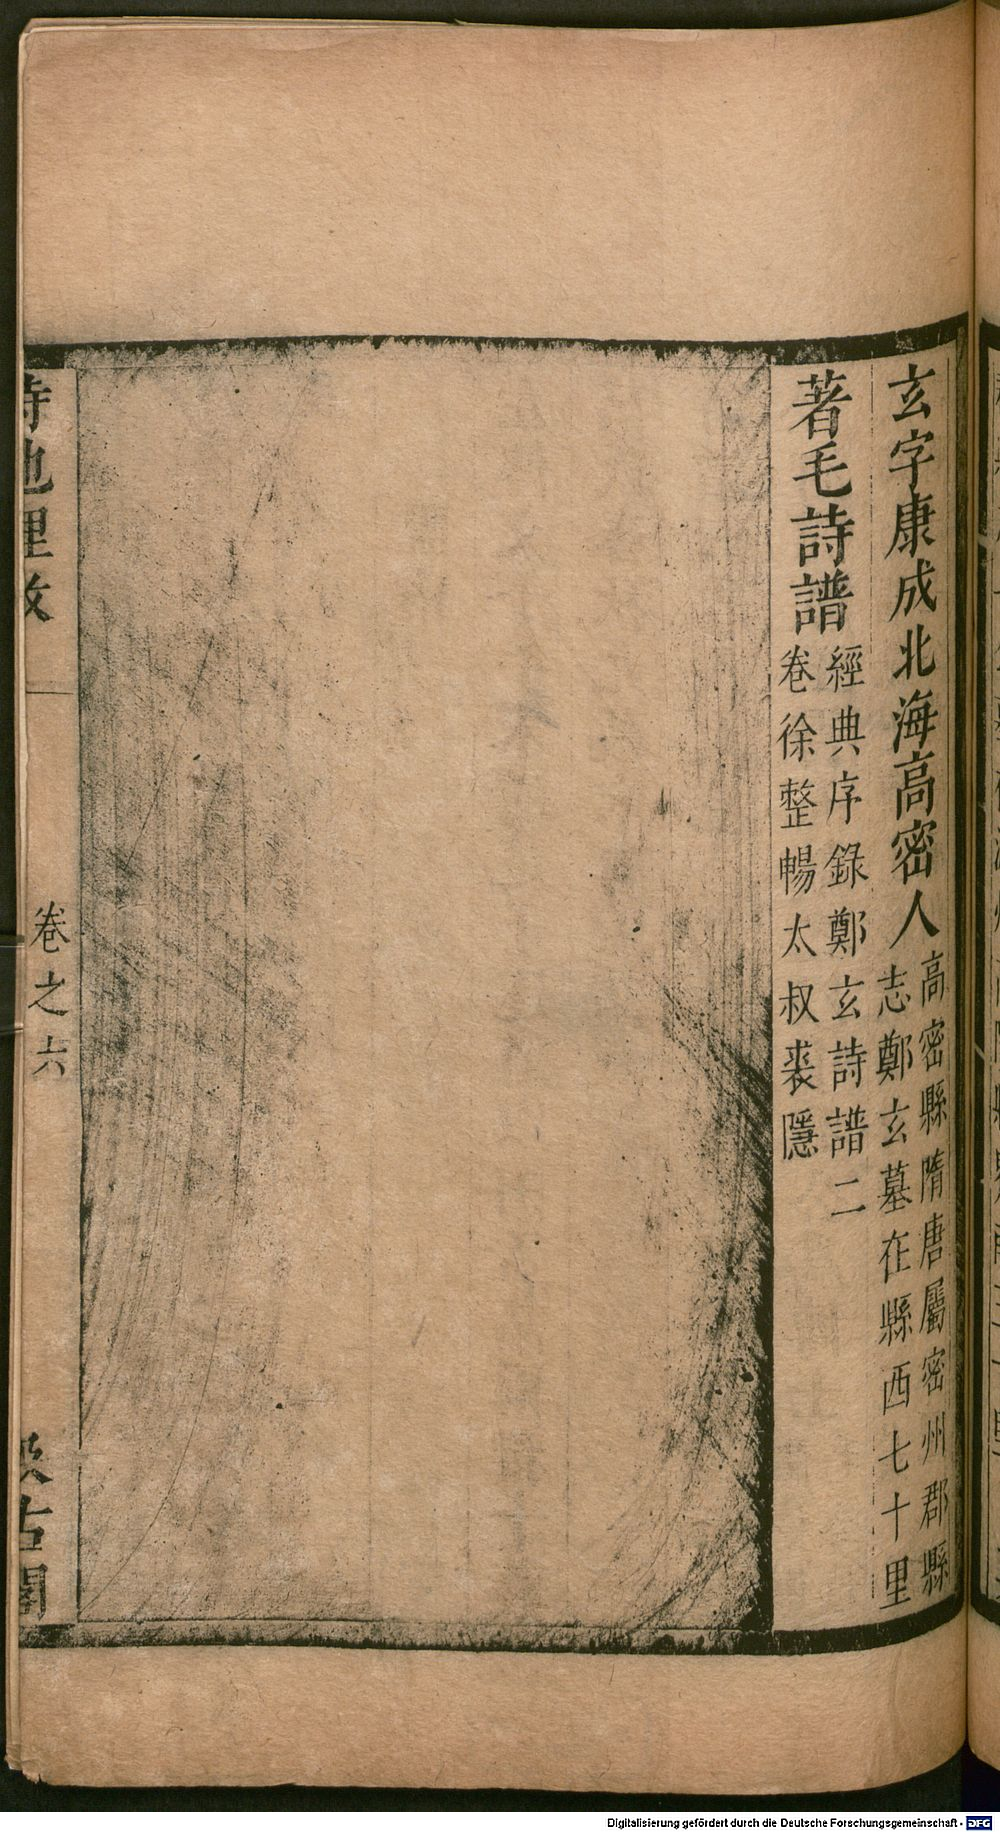 玄字康成北海高密人高密縣隋唐屬密州郡縣
志鄭玄墓在縣西七十里
著毛詩譜經典序錄鄭玄詩譜二
卷徐整暢太叔裘隱
詩地理攷
卷之六
汲古閣
Digitalisierung gefördert durch die Deutsche Forschungsgemeinschaft - DFG